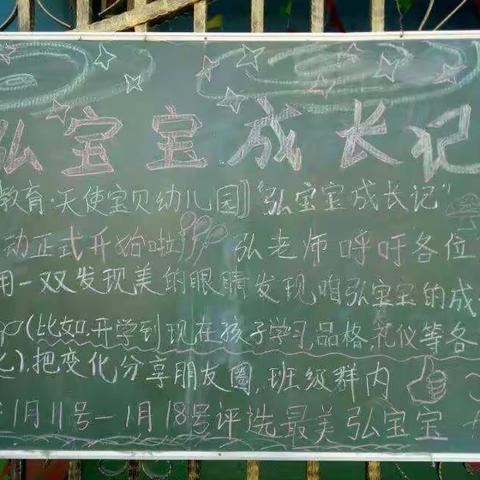 弘宝宝成长记
教育·天使宝贝幼儿园]]"弘宝宝成长记"
动正式开始啦 弘老师呼吁各位
用一双发现美的眼睛发现咱弘宝宝的成
(比如,开学到现在孩子学习,品格,礼仪等各
化).把变化分享朋友圈,班级群内
1月11号-1月18号评选最美弘宝宝